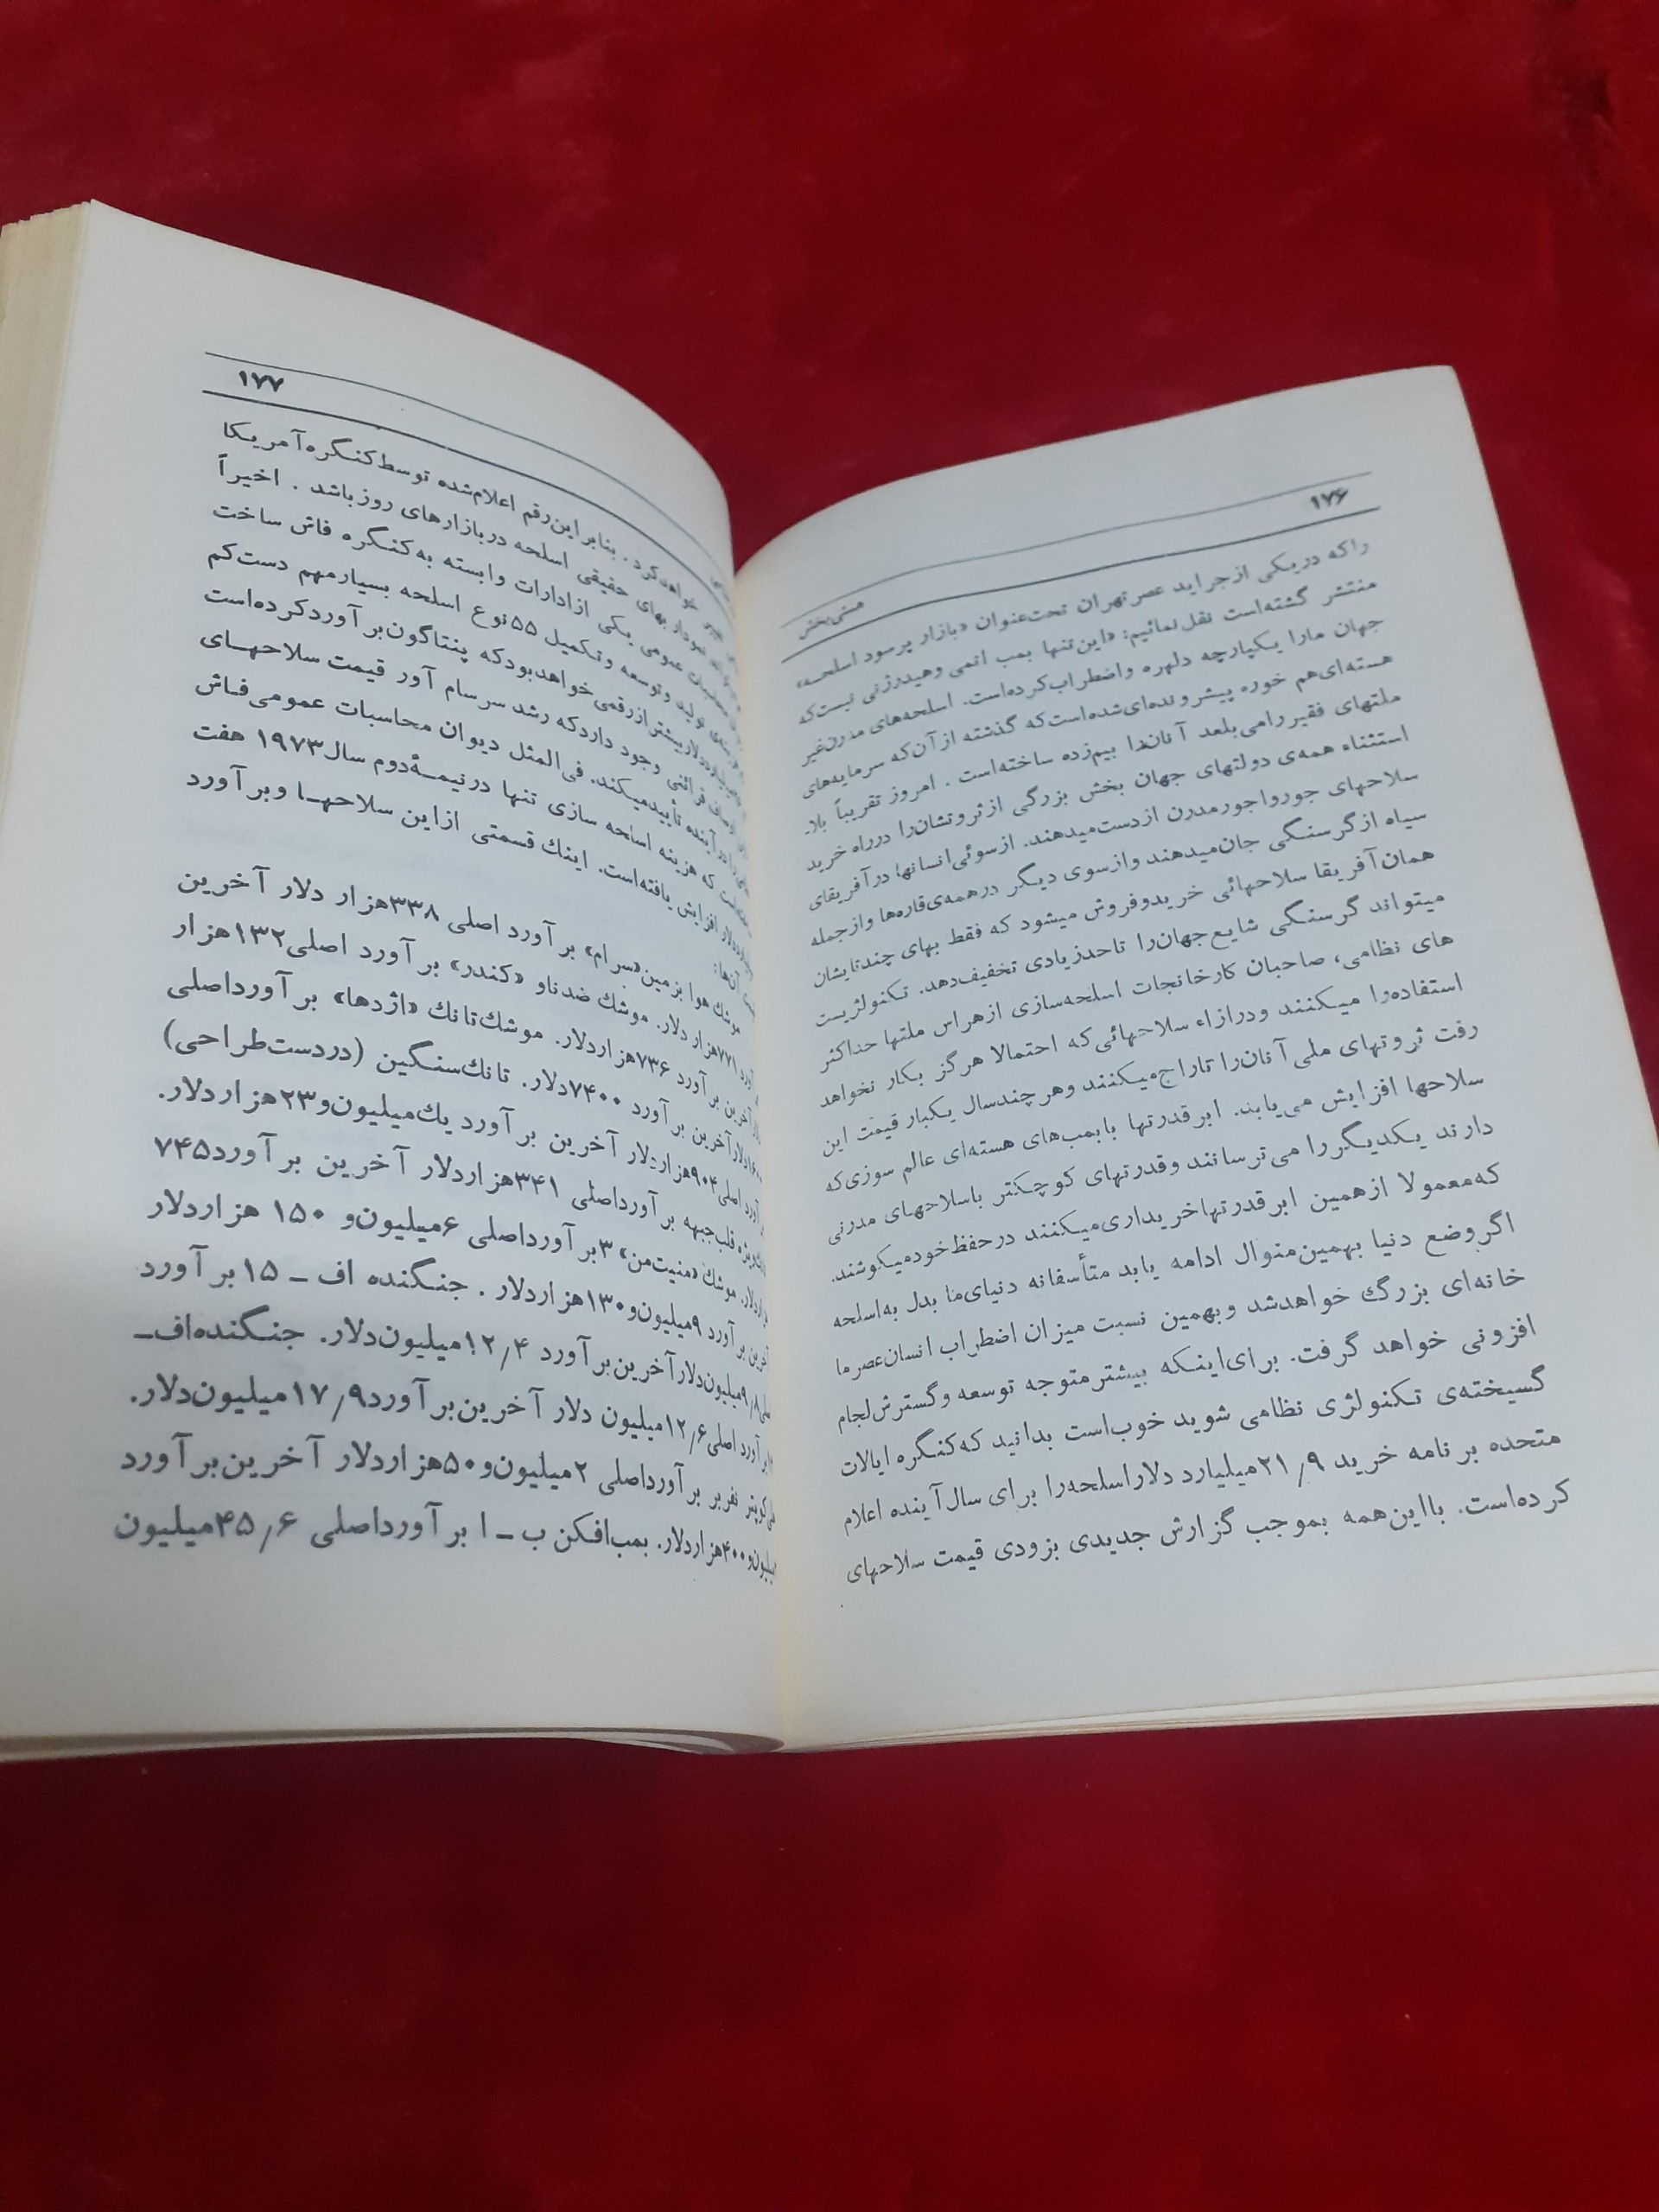 ۱۷۶
منتشر گشته‌است نقل‌نمائیم: «این‌تنها بمب اتمی وهیدرژنی نیست‌که
راکه دریکی ازجراید عصرتهران تحت‌عنوان «بازار پرسود اسلحه»
جهان مارا یکپارچه دلهره واضطراب‌کرده‌است. اسلحه‌های مدرن‌غیر
هسته‌ای‌هم خوره پیشرونده‌ای‌شده‌است‌که گذشته ازآن‌که سرمایه‌های
ملتهای فقیررامی‌بلعد آنان‌را بیم‌زده ساخته‌است . امروز تقریباً بلا-
استثناء همه‌ی دولتهای جهان بخش بزرگی ازثروتشان‌را درراه خرید
سلاحهای جورواجورمدرن ازدست‌میدهند. ازسوئی‌انسانها درآفریقای
سیاه ازگرسنگی جان‌میدهند وازسوی دیگر درهمه‌ی‌قاره‌ها وازجمله
همان‌آفریقا سلاحهائی خریدوفروش میشود که فقط بهای چندتایشان
میتواند گرسنگی شایع‌جهان‌را تاحدزیادی تخفیف‌دهد. تکنولژیست
های نظامی، صاحبان کارخانجات اسلحه‌سازی ازهراس ملتها حداکثر
استفاده‌را میکنند ودرازاء سلاحهائی‌که احتمالا هرگز بکار نخواهد
رفت ثروتهای ملی آنان‌را تاراج‌میکنند وهرچندسال یکبار قیمت این
سلاحها افزایش می‌یابد. ابرقدرتها بابمب‌های هسته‌ای عالم سوزی‌که
دارند یکدیگر را می‌ترسانند وقدرتهای کوچکتر باسلاحهای مدرنی
که‌معمولا ازهمین ابرقدرتهاخریداری‌میکنند درحفظ‌خودمیکوشند.
اگروضع دنیا بهمین‌منوال ادامه یابد متأسفانه دنیای‌ما بدل به‌اسلحه
خانه‌ای بزرگ خواهدشد وبهمین نسبت میزان اضطراب انسان‌عصرما
افزونی خواهد گرفت. برای‌اینکه بیشترمتوجه توسعه وگسترش‌لجام
گسیخته‌ی تکنولژی نظامی شوید خوب‌است بدانید که‌کنگره ایالات
متحده برنامه خرید ۲۱٫۹میلیارد دلاراسلحه‌را برای سال‌آینده اعلام
کرده‌است. بااین‌همه بموجب گزارش جدیدی بزودی قیمت سلاحهای
۱۷۷
خواهدکرد . بنابراین‌رقم اعلام‌شده توسط‌کنگره‌آمریکا
نمودار بهای حقیقی اسلحه دربازارهای روزباشد . اخیراً
عمومی یکی ازادارات وابسته به‌کنگره فاش ساخت
تولید وتوسعه وتکمیل ۵۵نوع اسلحه بسیارمهم دست‌کم
بیشتر ازرقمی‌خواهدبودکه پنتاگون‌برآوردکرده‌است
قرائنی وجود داردکه رشد سرسام آور قیمت سلاحهای
درآینده تأییدمیکند. فی‌المثل دیوان محاسبات عمومی‌فاش
که هزینه اسلحه سازی تنها درنیمهٔ‌دوم سال۱۹۷۳ هفت
افزایش یافته‌است. اینك قسمتی ازاین سلاحها وبرآورد
آن‌ها:
موشك هوا بزمین«سرام» برآورد اصلی ۳۳۸هزار دلار آخرین
۷۷۱هزار دلار. موشك ضدناو «کندر» برآورد اصلی۱۳۲هزار
آخرین برآورد ۷۳۶هزاردلار. موشك‌تانك «اژدها» برآورداصلی
دلارآخرین برآورد ۷۴۰۰دلار. تانك‌سنگین (دردست‌طراحی)
اصلی۹۰۴هزاردلار آخرین برآورد یك‌میلیون‌و۲۳هزاردلار.
قلب‌جبهه برآورداصلی ۳۴۱هزاردلار آخرین برآورد۷۴۵
موشك «منیت‌من» ۳برآورداصلی ۶میلیون‌و ۱۵۰ هزاردلار
آخرین برآورد ۹میلیون‌و۱۳۰هزاردلار . جنگنده اف ـ ۱۵ برآورد
۹٫۸میلیون‌دلارآخرین‌برآورد ۱۲٫۴میلیون‌دلار. جنگنده‌اف‌ـ
برآورد اصلی۱۲٫۶میلیون دلار آخرین‌برآورد۱۷٫۹میلیون‌دلار.
نفربر برآورداصلی ۲میلیون‌و۵۰هزاردلار آخرین‌برآورد
۴۰۰هزاردلار. بمب‌افکن ب ـ ۱ برآورداصلی ۴۵٫۶میلیون